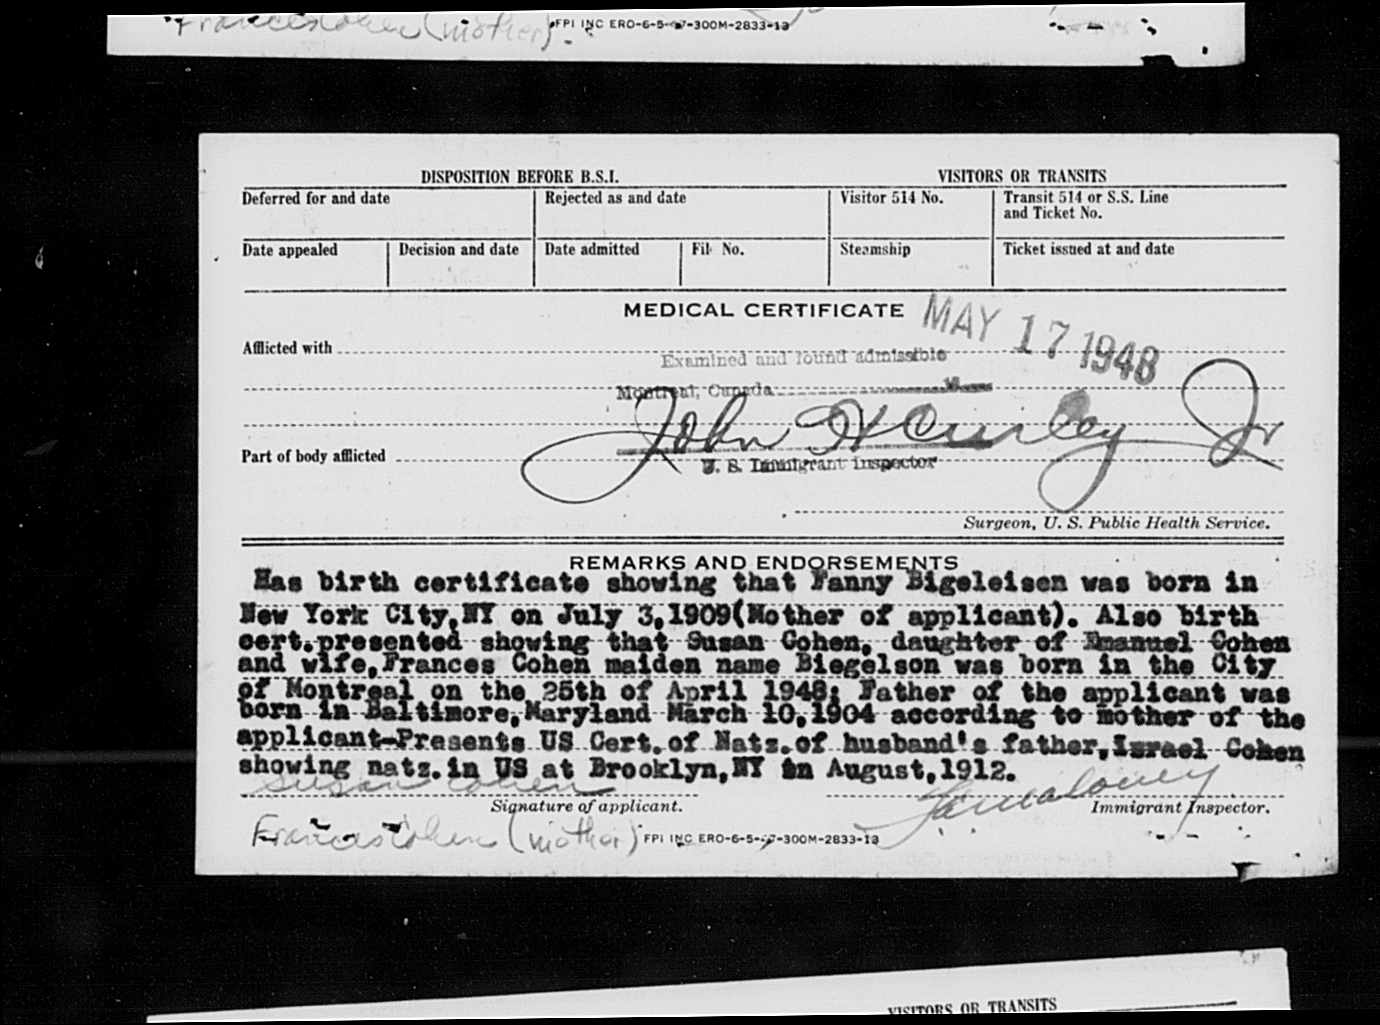 Frances Cohen (mother) FPI INC ERO-6-5-47-300M-2833-13
DISPOSITION BEFORE B.S.I. VISITORS OR TRANSITS
Deferred for and date Rejected as and date Visitor 514 No. Transit 514 or S.S. Line
and Ticket No.
Date appealed Decision and date Date admitted File No. Steamship Ticket issued at and date
MEDICAL CERTIFICATE
MAY 17 1948
Afflicted with
Examined and found admissible
Montreal, Canada
John H Curley Jr
Part of body afflicted
U. S. Immigrant Inspector
Surgeon, U. S. Public Health Service.
REMARKS AND ENDORSEMENTS
Has birth certificate showing that Fanny Bigeleisen was born in
New York City,NY on July 3,1909(Mother of applicant). Also birth
cert.presented showing that Susan Cohen, daughter of Emanuel Cohen
and wife,Frances Cohen maiden name Biegelson was born in the City
of Montreal on the 25th of April 1948; Father of the applicant was
born in Baltimore,Maryland March 10,1904 according to mother of the
applicant-Presents US Cert.of Natz.of husband's father,Israel Cohen
showing natz.in US at Brooklyn,NY in August,1912.
Susan Cohen
Signature of applicant. Immigrant Inspector.
Frances Cohen (mother) FPI INC ERO-6-5-47-300M-2833-13
VISITORS OR TRANSITS